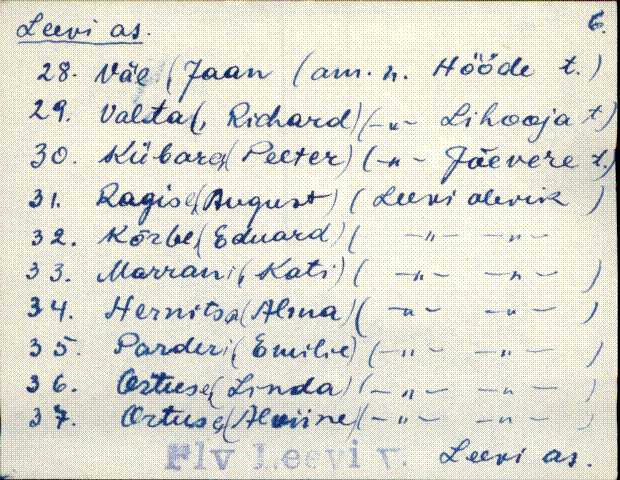 Leevi as. 6.
28. Väe, (Jaan (am. n. Hööde t.)
29. Valsta(, Richard) (-"- Lihooja t)
30. Kübara, (Peeter) (-"- Jõevere t.)
31. Ragise, (August) (Leevi alevik)
32. Kõrbe, (Eduard) ( -"- -"-
33. Marrani, (Kati) ( -"- -"- )
34. Hernitsa, (Alma) ( -"- -"- )
35. Parderi, (Emilie) (-"- -"- )
36. Ortuse, (Linda) (-"- -"- )
37. Ortuse, (Alviine) (-"- -"- )
Flv Leevi v. Leevi as.